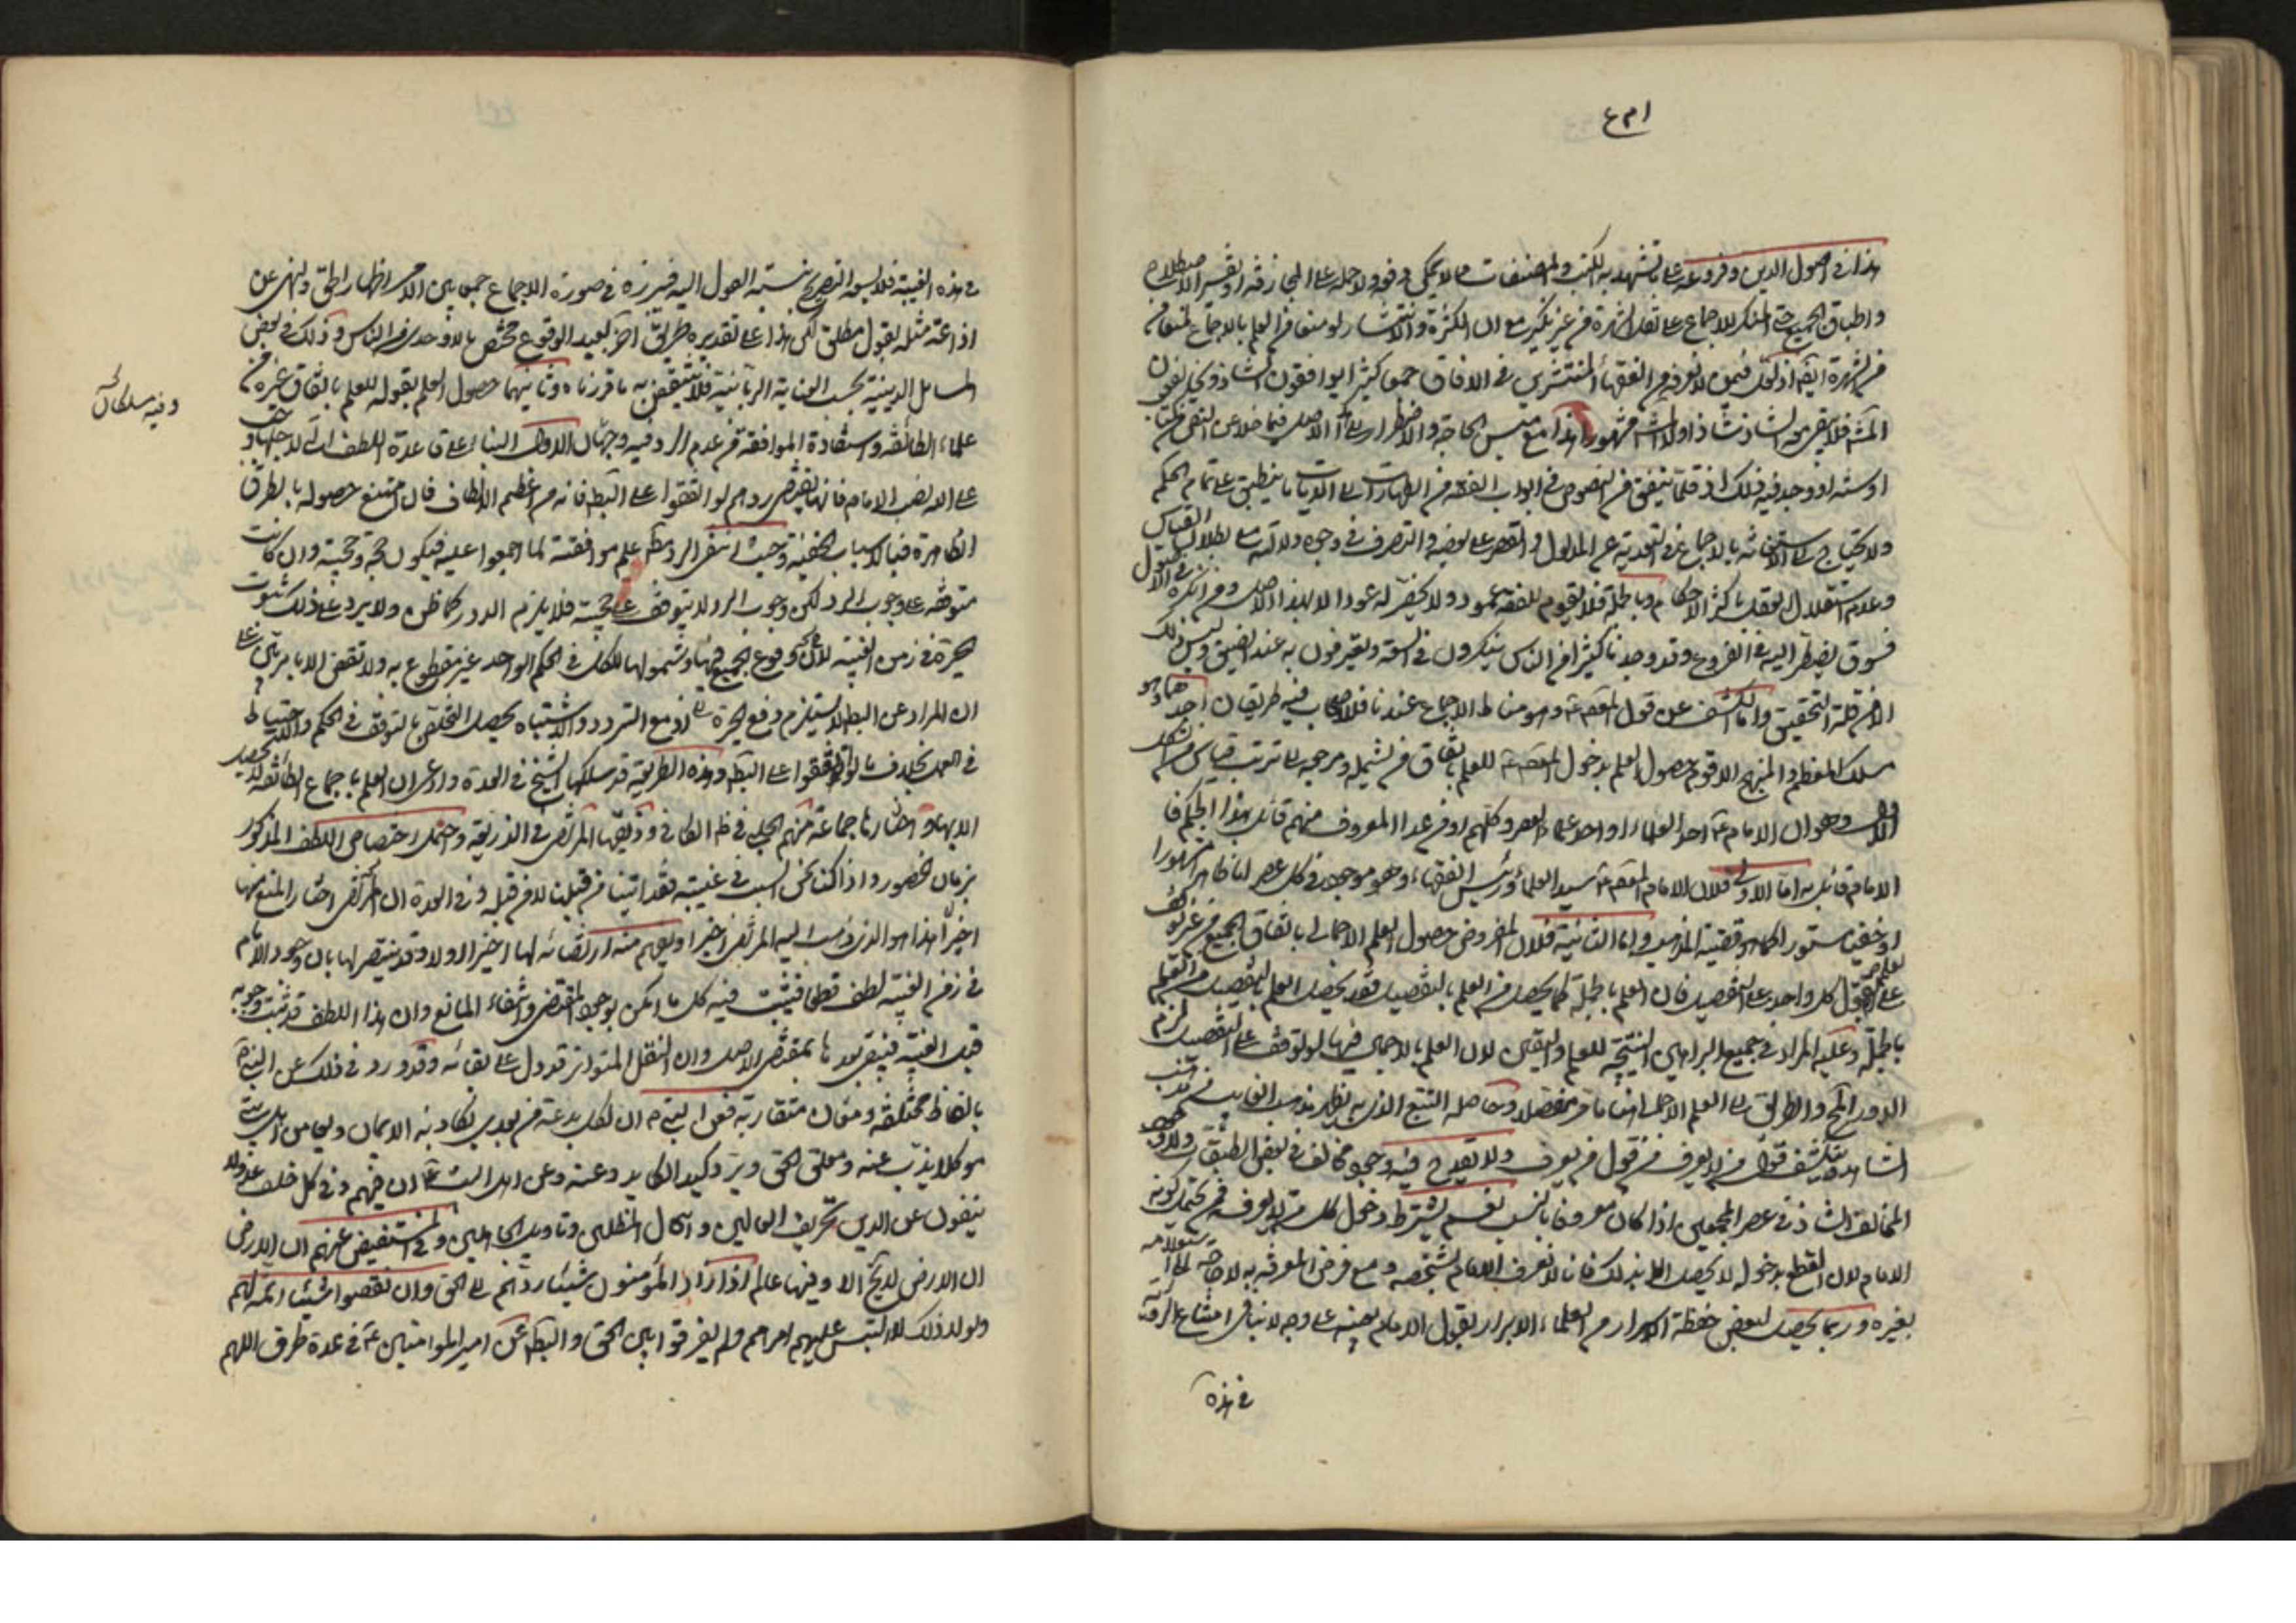 هذا في اصول الدين وفروعه على ما تشهد به الكتب والمصنفات مما لا يمكن دفعه ولا حمله على المجازفة او تغيير الاصطلاح
واطباق الجميع حتى المنكر للاجماع على نقل الشهرة من غير نكير مع ان الكثرة والانتشار لو منعا من العلم بالاجماع لمنعا من
الشهرة ايضا اذ فيمن لا نعرفه من الفقهاء المنتشرين في الافاق جمع كثير ربما يوافقون الشاذ ويخالفون
المشهور فلا يبقى معه الشاذ شاذا ولا المشهور مشهورا هذا مع مسيس الحاجة والاضطرار الى هذا الاصل فيما خلا عن النص من كتاب
او سنة او وجد فيه ذلك اذ قلما يتفق من النصوص في ابواب الفقه من الطهارات الى الديات ما ينطبق على تمام الحكم
ولا يحتاج الى الاستعانة بالاجماع في التعدية عن المدلول او القصر على بعضه والتصرف في وجوه دلالته مع بطلان القياس
وعدم استقلال العقل باكثر الاحكام وبالجملة فلا يقوم للفقه عمود ولا يخضر له عود الا بهذا الاصل ومن انكره في الاصول
فسوف يضطر اليه في الفروع وقد وجدنا كثيرا من الناس ينكرون في السعة ويعترفون به عند الضيق وليس ذلك
الا من قلة التحقيق واما الكشف عن قول المعصوم وهو مناط الاجماع عندنا فللاصحاب فيه طريقان احدهما وهو
مسلك المعظم والمنهج الاقوم حصول العلم بدخول المعصوم للعلم باتفاق من يشمله ومرجعه الى ترتيب قياس من الشكل
الاول وهو ان الامام احد العلماء او احد علماء العصر وكلهم او من عدا المعروف منهم قائل بهذا الحكم فا
الامام قائل به اما الاولى فلان الامام المعصوم سيد العلماء ورئيس الفقهاء وهو موجود في كل عصر اما ظاهرا مشهورا
او خفيا مستورا كما هو قضية المذهب واما الثانية فلان المفروض حصول العلم الاجمالي باتفاق الجميع من غير توقف
على العلم بقول كل واحد على التفصيل فان العلم بالجملة كما يحصل من العلم بالتفصيل فقد يحصل العلم بالتفصيل من العلم
بالجملة وعليه المدار في جميع البراهين المنتجة للعلم واليقين لان العلم الاجمالي فيها لو توقف على التفصيل لزم
الدور المحال والطريق الى العلم الاجمالي هنا ما مر مفصلا وحاصله التتبع الذي به يظهر مذهب الغايب من مذهب
الشاهد وينكشف قول من لا يعرف من قول من يعرف ولا يقدح فيه وجود مخالف في بعض الطبقات ولا وجود
المخالف الشاذ في عصر المجمعين اذا كان معروفا بالنسب نعم يشترط دخول كل من لا يعرف ممن يحتمل كونه
الامام لان القطع بدخوله لا يحصل الا بذلك فانا لا نعرف الامام بشخصه ومع فرض المعرفة به لا حاجة
بغيره وربما يحصل لبعض حفظة الاسرار من العلماء الابرار العلم بقول الامام بعينه على وجه لا ينافي امتناع الرؤية
في هذه
في هذه الغيبة فلا يسعه التصريح بنسبة القول اليه فيبرزه في صورة الاجماع جمعا بين الامر باظهار الحق والنهي عن
اذاعة مثله بقول مطلق لكن هذا على تقديره طريق اخر بعيد الوقوع مختص بالاوحدي من الناس وذلك في بعض
المسائل الدينية بحسب العناية الربانية فلا ينتقض به ما قررناه وثانيهما حصول العلم بقوله للعلم باتفاق غيره من
علماء الطائفة واستفادة الموافقة من عدم الرد وفيه وجهان الاول البناء على قاعدة اللطف التي لاجلها وجب
على الله نصب الامام فانها تقتضي ردهم لو اتفقوا على الباطل فانه من اعظم الالطاف فان امتنع حصوله بالطرق
الظاهرة فبالاسباب الخفية وحيث انتفى الرد منه علم موافقته لما اجمعوا عليه فيكون حجة وحجيته وان كانت
متوقفة على وجوب الرد لكن وجوب الرد لا يتوقف على حجيته فلا يلزم الدور كما ظن ولا يرد على ذلك ثبوت
الحيرة في زمن الغيبة لان وقوع الجميع فيها وشمولها للكل في الحكم الواحد غير مقطوع به ولا نقض الا بامر بين على
ان الرد عن الباطل لا يستلزم دفع الحيرة اذ مع التردد والاشتباه يحصل التخلص بالتوقف في الحكم والاحتياط
في العمل بخلاف ما لو اتفقوا على الباطل وهذه الطريقة قد سلكها الشيخ في العدة وادعى ان العلم باجماع الطائفة لا يحصل
الا بها واختارها جماعة منهم الحلبي في ظاهر الكافي وذكرها المرتضى في الذريعة واحتمل اختصاص اللطف المذكور
بزمان الحضور واذا كنا نحن السبب في غيبته فقد اتينا من قبلنا لا من قبله وفي العدة ان المرتضى اختار المنع منها
اخيرا هذا هو الذي ذهب اليه المرتضى اخيرا ويفهم منه ارتضائه لها اولا وقد ينتصر لها بان وجود الامام
في زمن الغيبة لطف قطعا فيثبت فيه كل ما امكن لوجود المقتضي وانتفاء المانع وان هذا اللطف قد ثبت وجوبه
قبل الغيبة فيبقى بعدها بمقتضى الاصل وان النقل المتواتر قد دل على بقائه وقد ورد في ذلك عن النبي
بالفاظ مختلفة ومعان متقاربة فعن النبي ان لكل بدعة من بعدي يكاد بها الايمان وليا من اهل بيتي
موكلا يذب عنه ويعلن الحق ويرد كيد الكايدين وعنه وعن اهل البيت ان فيهم في كل خلف عدولا
ينفون عن الدين تحريف الغالين وانتحال المبطلين وتاويل الجاهلين وفي المستفيض عنهم ان الارض
ان الارض لا تخلو الا وفيها عالم اذا زاد المؤمنون شيئا ردهم الى الحق وان نقصوا شيئا تممه لهم
ولولا ذلك لالتبس عليهم امرهم ولم يفرقوا بين الحق والباطل وعن امير المؤمنين في عدة طرق اللهم